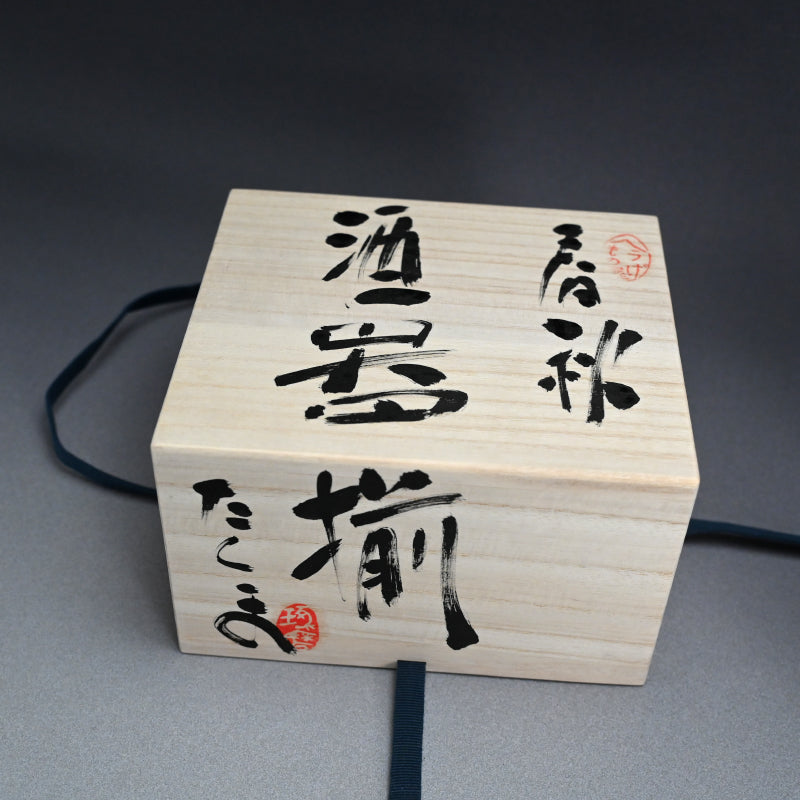 春秋
へうげもの
酒器揃
たくま